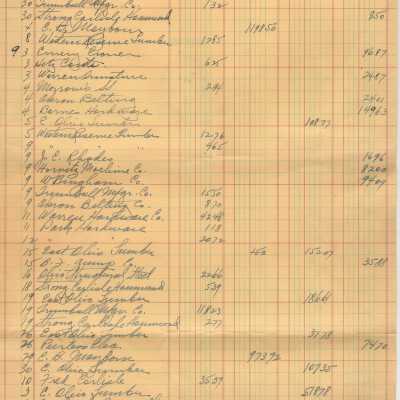 30 Trumbull Mfgr. Co. 132
30 Strong Carlisle Hammond 950
4 E. B. Mayborn 119850
8 Western Reserve Lumber 1785
9 3 Emery 9687
3 625
3 Warren Furniture 2487
4 294
4 Akron Belting 2401
4 Barnes Hardware 14963
5 E. Ohio Lumber 10877
5 Western Reserve Lumber 1276
9 " 465
9 J. E. Rhodes 1696
9 Horvitz Machine Co. 8200
9 W Bingham Co. 9409
9 Trumbull Mfgr. Co. 1550
9 Akron Belting Co. 870
11 Warren Hardware Co. 4248
11 Park Hardware 118
12 " 2072
15 East Ohio Lumber 452 15207
15 3588
16 Ohio Structural Steel 2266
18 Strong Carlisle Hammond 539
19 East Ohio Lumber 18661
19 Trumbull Mfgr. Co. 11823
19 Strong Carlisle Hammond 277
26 East Ohio Lumber 3778
26 Peerless 7470
29 E. B. Mayborn 97392
30 E. Ohio Lumber 10735
10 Fred Carlisle 3537
3 E. Ohio Lumber 51878